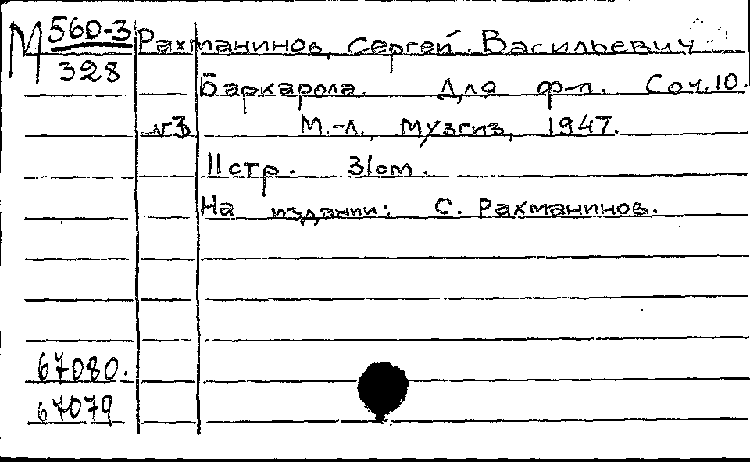 М 560-3 Рахманинов, Сергей Васильевич
328
Баркарола. Для ф-п. Соч.10.
№3 М.-Л., Музгиз, 1947.
11 стр. 31 cm.
На издании: С. Рахманинов.
67080.
67079